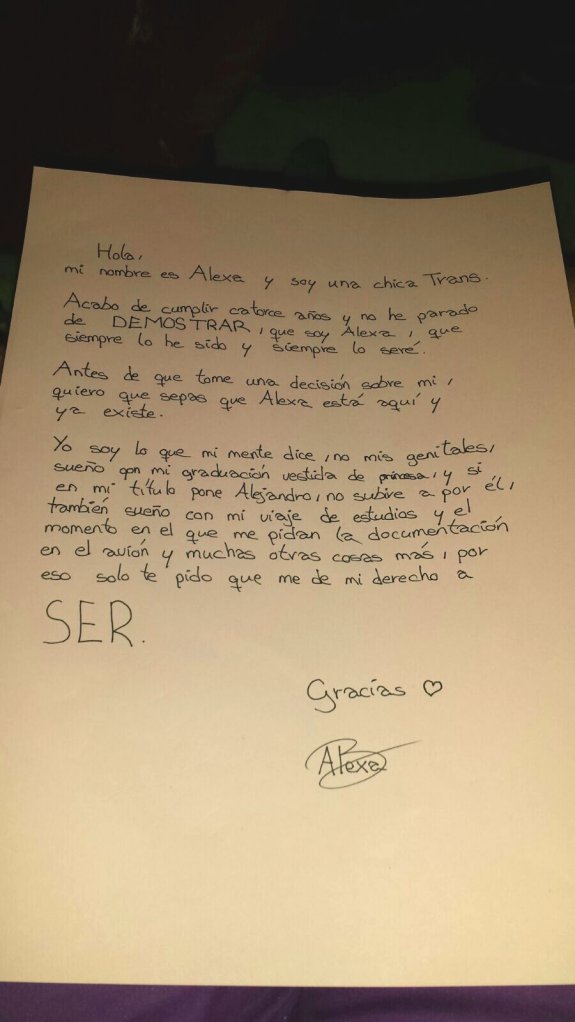 Hola,
mi nombre es Alexa y soy una chica Trans.
Acabo de cumplir catorce años y no he parado
de DEMOSTRAR, que soy Alexa, que
siempre lo he sido y siempre lo seré.
Antes de que tome una decisión sobre mi,
quiero que sepas que Alexa está aquí y
ya existe.
Yo soy lo que mi mente dice, no mis genitales,
sueño con mi graduación vestida de princesa, y si
en mi título pone Alejandro, no subire a por él,
también sueño con mi viaje de estudios y el
momento en el que me pidan la documentación
en el avión y muchas otras cosas más, por
eso solo te pido que me de mi derecho a
SER.
Gracias ♡
Alexa